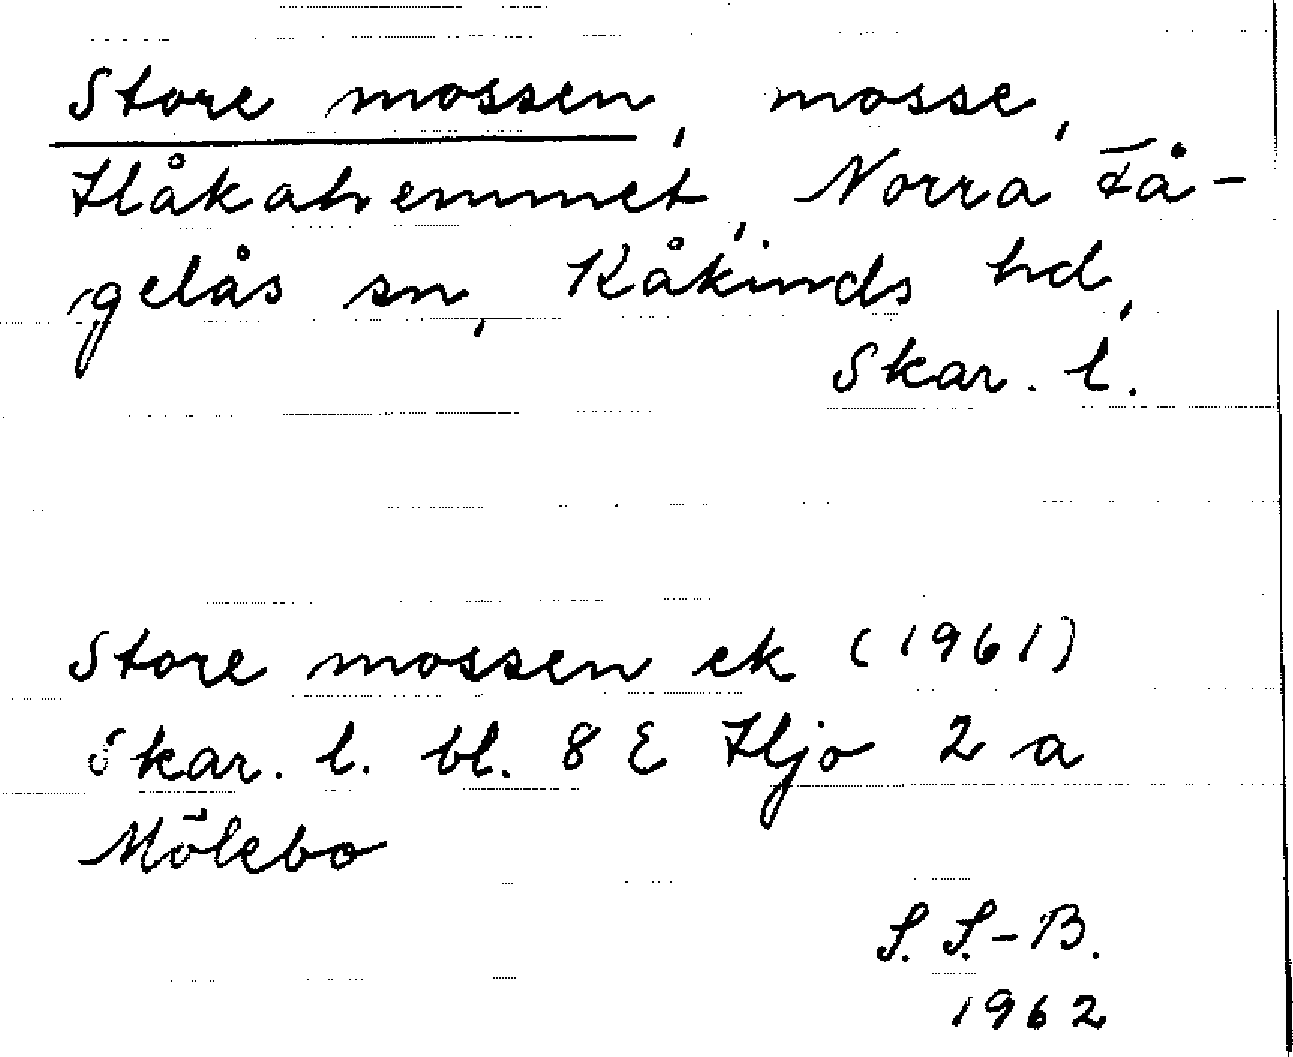 Store mossen, mosse,
Håkahemmet, Norra Få-
gelås sn, Kåkinds hd,
Skar. l.
Store mossen ek (1961)
Skar. l. bl. 8 E Hjo 2 a
Mölebo
S. S.-B.
1962